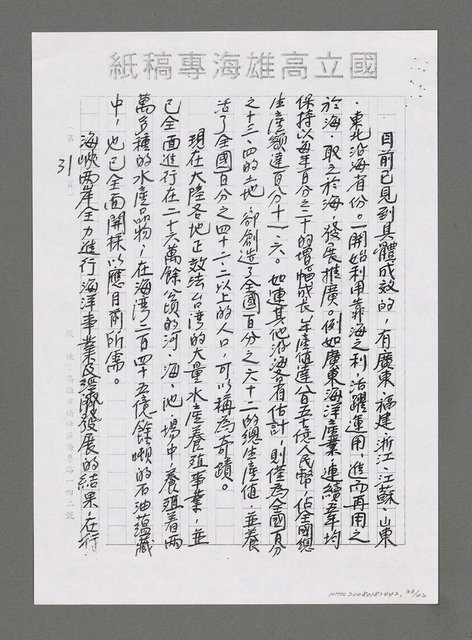 國立高雄海專稿紙
目前已見到具體成效的，有廣東、福建、浙江、江蘇、山東
、東北沿海省份。一開始利用靠海之利，活躍運用，進而再用之
於海，取之於海，發展推廣。例如廣東海洋產業，連續五年均
保持以每年百分之二十的增幅成長，年產值達八百五十億人民幣，佔全國總
生產額達百分十一．六。如連其他沿海各省估計，則僅為全國百分
之十三．四的土地，卻創造了全國百分之六十二的總生產值，並養
活了全國百分之四十二．三以上的人口，可以稱為奇蹟。
現在大陸各地正效法台灣的大量水產養殖事業，並
已全面進行在二十六萬餘公頃的河、海、池場中，養殖著兩
萬多種的水產品物，在海灣二百四十五億餘噸的石油蘊藏
中，也已全面開採以應目前所需。
海峽兩岸全力進行海洋事業及經濟發展的結果，在行
31
NMTL20080182442, 33/42